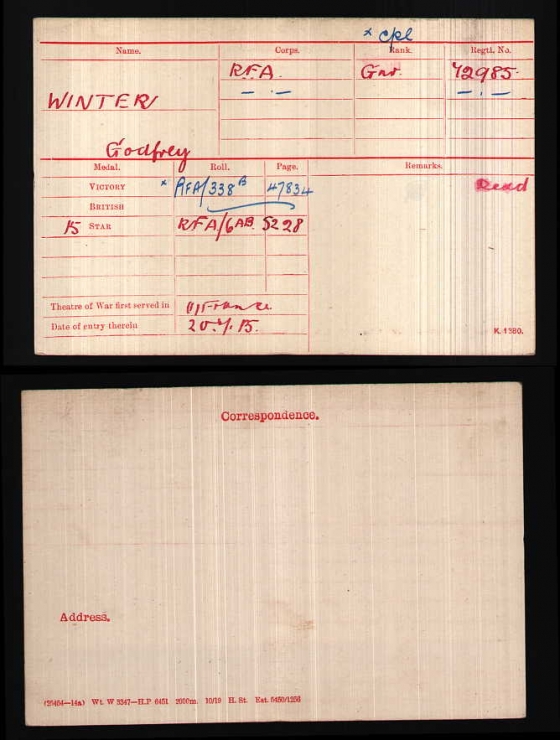 * Cpl
Name. Corps. Rank. Regtl. No.
R.F.A. Gnr. 42985.
— . — — . —
WINTER
Godfrey
Medal. Roll. Page. Remarks.
VICTORY * RFA/338 B 47834 Dead
BRITISH
15 STAR RFA/6AB. 5228
Theatre of War first served in (1) France
Date of entry therein 15.
K. 1380.
Correspondence.
Address.
Wt. W 5347—H.P 6451 2000m. 10/19 H. St.